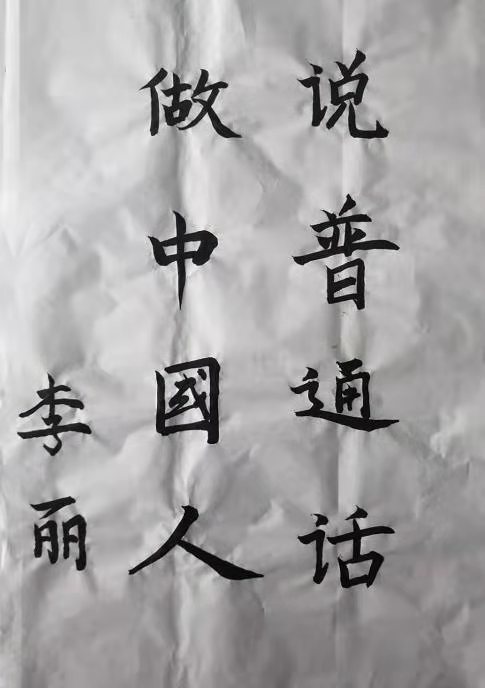 说普通话
做中國人
李丽